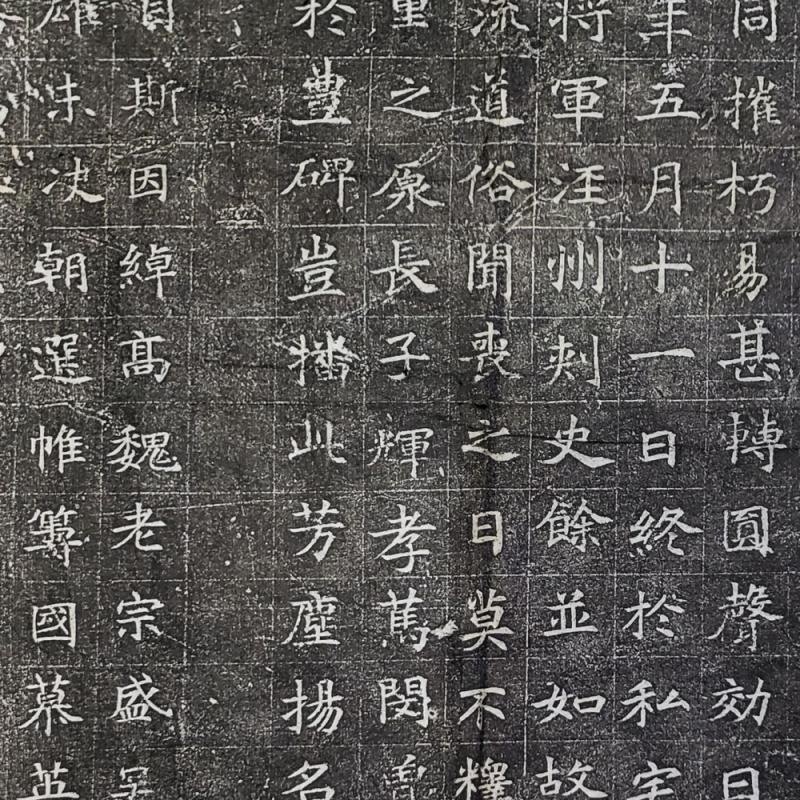 同摧朽易甚轉圓聲効日
年五月十一日終於私宅
將軍汪州刾史餘並如故
流道俗聞喪之日莫不釋
重之原長子輝孝篤閔
於豊碑豈播此芳塵揚名
斯因綽高魏老宗盛
雄未決朝選帷籌國慕英